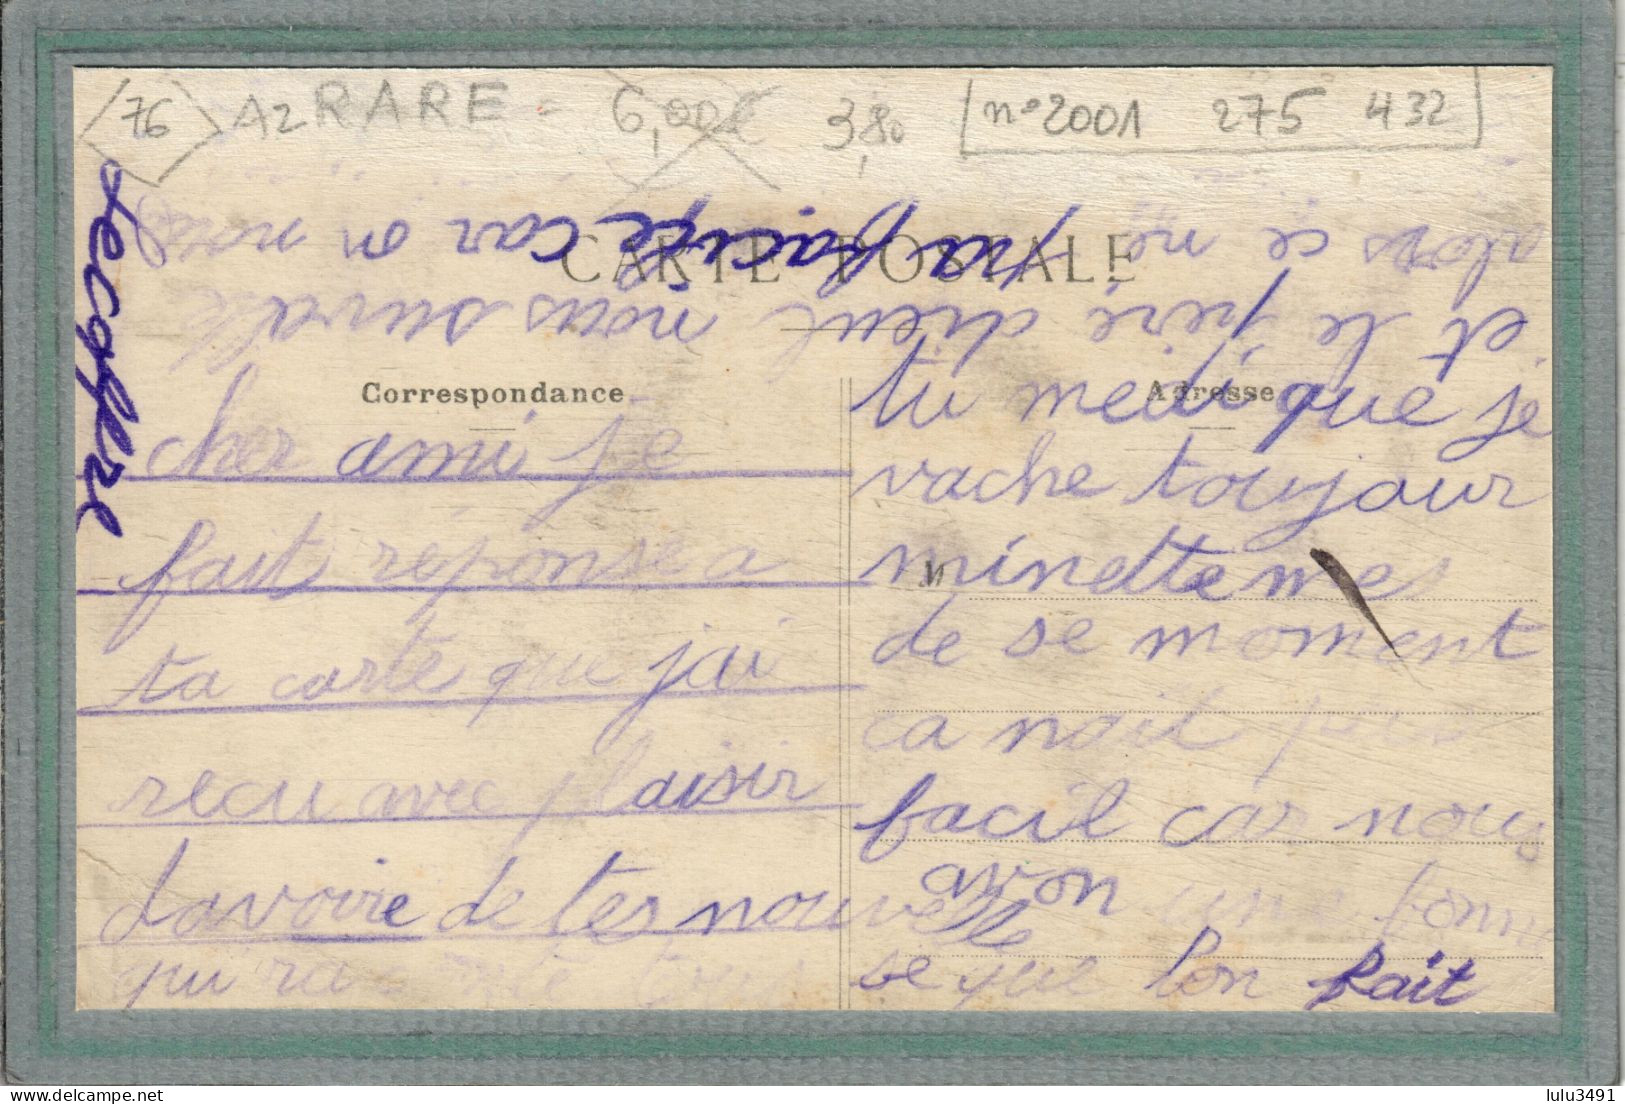 76 A2 RARE = 6,00€ 3,80 n° 2001 275 432
CARTE POSTALE
Correspondance
Adresse
cher ami je
fait reponse a
ta carte que j'ai
recu avec plaisir
davoire de tes nouvelle
qu'ra
tu medi que je
vache toujour
minette mes
de se moment
ca nait pas
facil car nous
avon une bonne
se que lon fait
et le père dicul nous surveille
alors ce ne pa facile car on nous
M
lulu3491